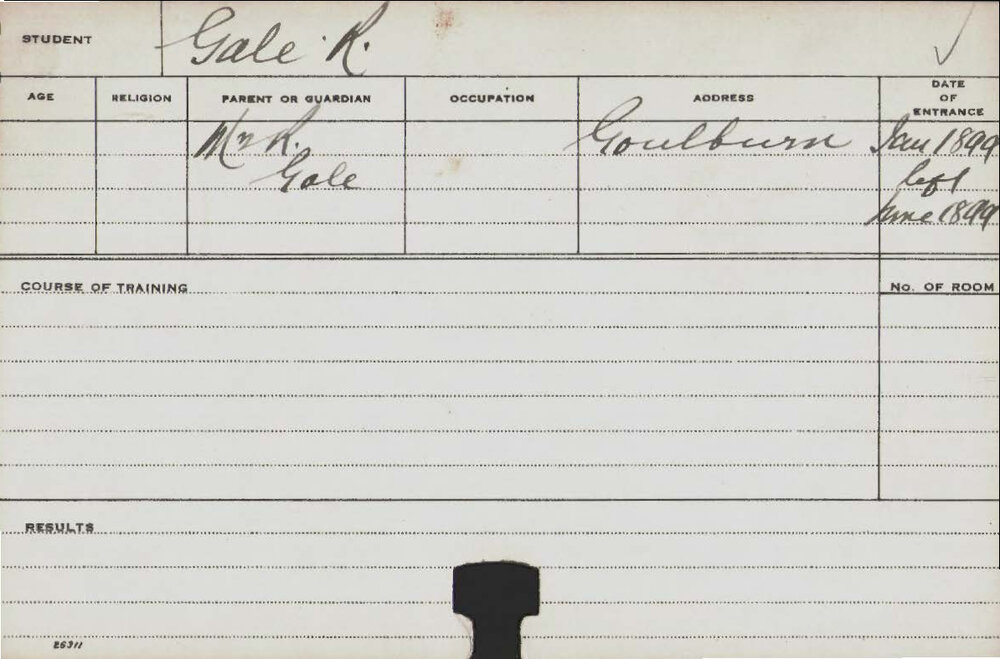 STUDENT Gale R.
AGE RELIGION PARENT OR GUARDIAN OCCUPATION ADDRESS DATE OF ENTRANCE
Mr R. Goulburn Jan 1899
Gale left
June 1899
COURSE OF TRAINING No. OF ROOM
RESULTS
E6311